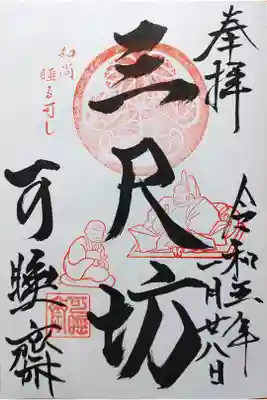 奉拝
令和五年
一月廿八日
三尺坊
和尚
睡る可し
可睡齋